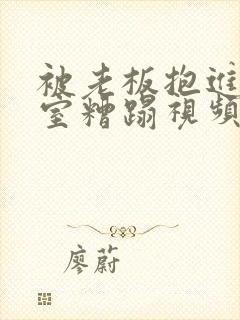 被老板抱进
室糟蹋視頻
廖蔚